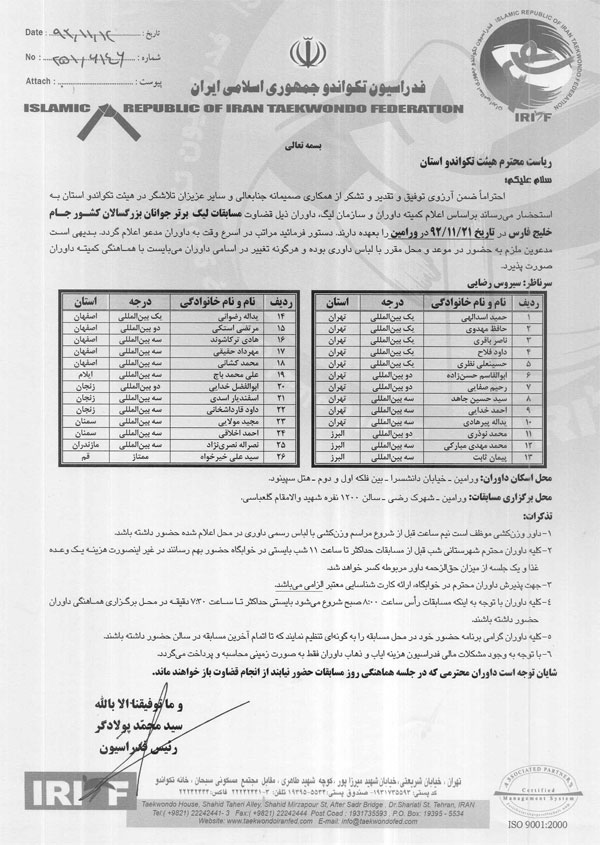 Date : ۹۲،۱۱،۱۲ تاریخ :
No : شماره :
Attach : پیوست :
ISLAMIC REPUBLIC OF IRAN TAEKWONDO FEDERATION
IRITF
فدراسیون تکواندو جمهوری اسلامی ایران
ISLAMIC REPUBLIC OF IRAN TAEKWONDO FEDERATION
بسمه تعالی
ریاست محترم هیئت تکواندو استان
سلام علیکم؛
احتراماً ضمن آرزوی توفیق و تقدیر و تشکر از همکاری صمیمانه جنابعالی و سایر عزیزان تلاشگر در هیئت تکواندو استان به
استحضار می‌رساند براساس اعلام کمیته داوران و سازمان لیگ، داوران ذیل قضاوت مسابقات لیگ برتر جوانان بزرگسالان کشور جام
خلیج فارس در تاریخ ۹۲/۱۱/۲۱ در ورامین را بعهده دارند. دستور فرمائید مراتب در اسرع وقت به داوران مدعو اعلام گردد. بدیهی است
مدعوین ملزم به حضور در موعد و محل مقرر با لباس داوری بوده و هرگونه تغییر در اسامی داوران می‌بایست با هماهنگی کمیته داوران
صورت پذیرد.
سرناظر: سیروس رضایی
ردیف نام و نام خانوادگی درجه استان
۱ حمید اسدالهی یک بین‌المللی تهران
۲ حافظ مهدوی یک بین‌المللی تهران
۳ ناصر باقری یک بین‌المللی تهران
۴ داود فلاح یک بین‌المللی تهران
۵ حسینعلی نظری یک بین‌المللی تهران
۶ ابوالقاسم حسن‌زاده دو بین‌المللی تهران
۷ رحیم صفایی دو بین‌المللی تهران
۸ سید حسین جاهد سه بین‌المللی تهران
۹ احمد خدایی سه بین‌المللی تهران
۱۰ یداله پیرهادی سه بین‌المللی تهران
۱۱ محمد نوذری دو بین‌المللی البرز
۱۲ محمد مهدی مبارکی سه بین‌المللی البرز
۱۳ پیمان ثابت سه بین‌المللی البرز
ردیف نام و نام خانوادگی درجه استان
۱۴ یداله رضوانی یک بین‌المللی اصفهان
۱۵ مرتضی استکی دو بین‌المللی اصفهان
۱۶ هادی ترکاشوند سه بین‌المللی اصفهان
۱۷ مهرداد حقیقی سه بین‌المللی اصفهان
۱۸ محمد کشانی سه بین‌المللی اصفهان
۱۹ علی محمد باج سه بین‌المللی ایلام
۲۰ ابوالفضل خدایی دو بین‌المللی زنجان
۲۱ اسفندیار اسدی سه بین‌المللی زنجان
۲۲ داود قارداشخانی سه بین‌المللی زنجان
۲۳ مجید مولایی سه بین‌المللی سمنان
۲۴ احمد اخلاقی سه بین‌المللی سمنان
۲۵ نصراله نصری‌نژاد سه بین‌المللی مازندران
۲۶ سید علی خیرخواه ممتاز قم
محل اسکان داوران: ورامین - خیابان دانشسرا - بین فلکه اول و دوم - هتل سپینود.
محل برگزاری مسابقات: ورامین - شهرک رضی - سالن ۱۲۰۰ نفره شهید والامقام گلعباسی.
تذکرات:
۱- داور وزن‌کشی موظف است نیم ساعت قبل از شروع مراسم وزن‌کشی با لباس رسمی داوری در محل اعلام شده حضور داشته باشد.
۲- کلیه داوران محترم شهرستانی شب قبل از مسابقات حداکثر تا ساعت ۱۱ شب بایستی در خوابگاه حضور بهم رسانند در غیر اینصورت هزینه یک وعده
غذا و یک جلسه از میزان حق‌الزحمه داور مربوطه کسر خواهد شد.
۳- جهت پذیرش داوران محترم در خوابگاه، ارائه کارت شناسایی معتبر الزامی می‌باشد.
۴- کلیه داوران با توجه به اینکه مسابقات رأس ساعت ۸:۰۰ صبح شروع می‌شود بایستی حداکثر تا ساعت ۷:۳۰ دقیقه در محل برگزاری هماهنگی داوران
حضور داشته باشند.
۵- کلیه داوران گرامی برنامه حضور خود در محل مسابقه را به گونه‌ای تنظیم نمایند که تا اتمام آخرین مسابقه در سالن حضور داشته باشند.
۶- با توجه به وجود مشکلات مالی فدراسیون هزینه ایاب و ذهاب داوران فقط به صورت زمینی محاسبه و پرداخت می‌گردد.
شایان توجه است داوران محترمی که در جلسه هماهنگی روز مسابقات حضور نیابند از انجام قضاوت باز خواهند ماند.
و ما توفیقنا الا بالله
سید محمد پولادگر
رئیس فدراسیون
IRITF
تهران ، خیابان شریعتی، خیابان شهید میرزا پور، کوچه شهید طاهری ، مقابل مجتمع مسکونی سبحان ، خانه تکواندو
کد پستی : ۱۹۳۱۷۳۵۵۹۳ صندوق پستی: ۵۵۳۴-۱۹۳۹۵ تلفن: ۳-۲۲۲۴۲۴۴۱ فاکس: ۲۲۲۴۲۴۴۴
Taekwondo House, Shahid Taheri Alley, Shahid Mirzapour St, After Sadr Bridge , Dr.Shariati St. Tehran, IRAN
Tel:(+9821) 22242441- 3 Fax:( +9821) 22242444 Post Coad : 1931735593 P.O. Box: 19395 - 5534
Website: www.taekwondoiranfed.com E-mail: info@taekwondofed.com
ASSOCIATED PARTNERS
Certified
Management System
ISO 9001:2000